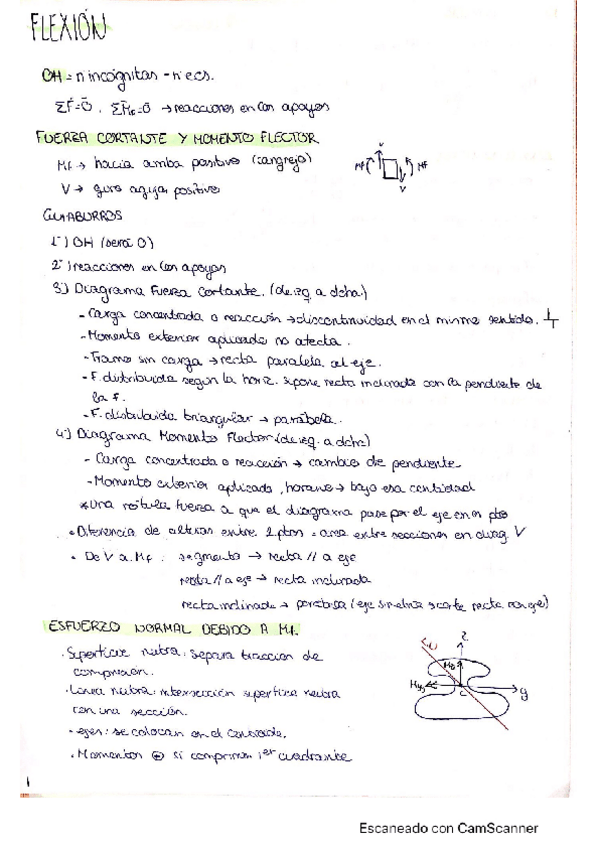 FLEXIÓN
GH = nº incógnitas - nº ecs.
ΣF̄=0̄ . ΣM̄F=0̄ → reacciones en los apoyos
FUERZA CORTANTE Y MOMENTO FLECTOR
MF → hacia arriba positivo (cangrejo)
V → giro agujas positivo
MF V V MF
GUIABURROS
1º) GH (será 0)
2º) reacciones en los apoyos
3º) Diagrama Fuerza Cortante. (de izq. a dcha.)
- Carga concentrada o reacción → discontinuidad en el mismo sentido.
- Momento exterior aplicado no afecta.
- Tramo sin carga → recta paralela al eje.
- F. distribuida según la horiz. supone recta inclinada con la pendiente de
la F.
- F. distribuida triangular → parábola.
4º) Diagrama Momento Flector (de izq. a dcha)
- Carga concentrada o reacción → cambio de pendiente
- Momento exterior aplicado, horario → bajo esa cantidad
* Una rótula fuerza a que el diagrama pase por el eje en ese pto
• Diferencia de alturas entre 2 ptos = area entre secciones en diag. V
• De V a Mf : segmento → recta // a eje
recta // a eje → recta inclinada
recta inclinada → parábola (eje simetría si corta recta con eje)
ESFUERZO NORMAL DEBIDO A Mf.
• Superficie neutra: separa tracción de
compresión.
• Línea neutra: intersección superficie neutra
con una sección.
• ejes: se colocan en el centroide.
• Momentos ⊕ si comprimen 1er cuadrante
z
y
C
1
Escaneado con CamScanner